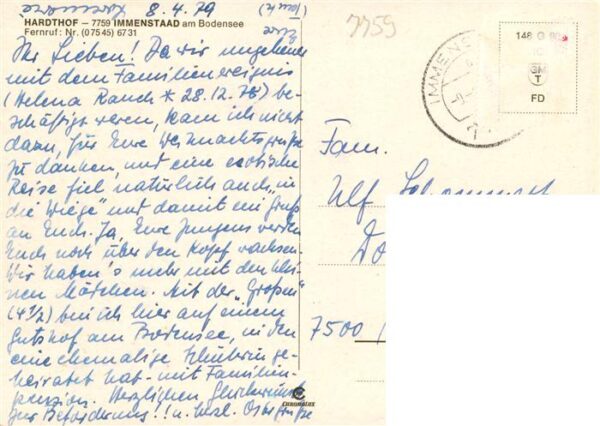 8.4.79
HARDTHOF – 7759 IMMENSTAAD am Bodensee
Fernruf: Nr. (0 75 45) 67 31
Ihr Lieben! Da wir ungeheuer
mit dem Familienereignis
(Helena Rauch * 28.12.78) be-
schäftigt waren, kam ich nicht
dazu, für Eure Weihnachtsgrüße
zu danken, und eine exotische
Reise fiel natürlich auch „in
die Wiege" und damit ein Gruß
an Euch. Ja, Eure Jungens werden
Euch noch über den Kopf wachsen.
Wir haben's mehr mit den klei-
nen Mädchen. Mit der „Großen"
(4 1/2) bin ich hier auf einem
Gutshof am Bodensee, in den
eine ehemalige Schülerin ge-
heiratet hat - mit Familien-
pension. Herzlichen Glückwunsch
zur Beförderung!! u. herzl. Ostergrüße
Eure
7759
IMMENS
148 G 90
GM
T
FD
Fam.
Ulf
7500